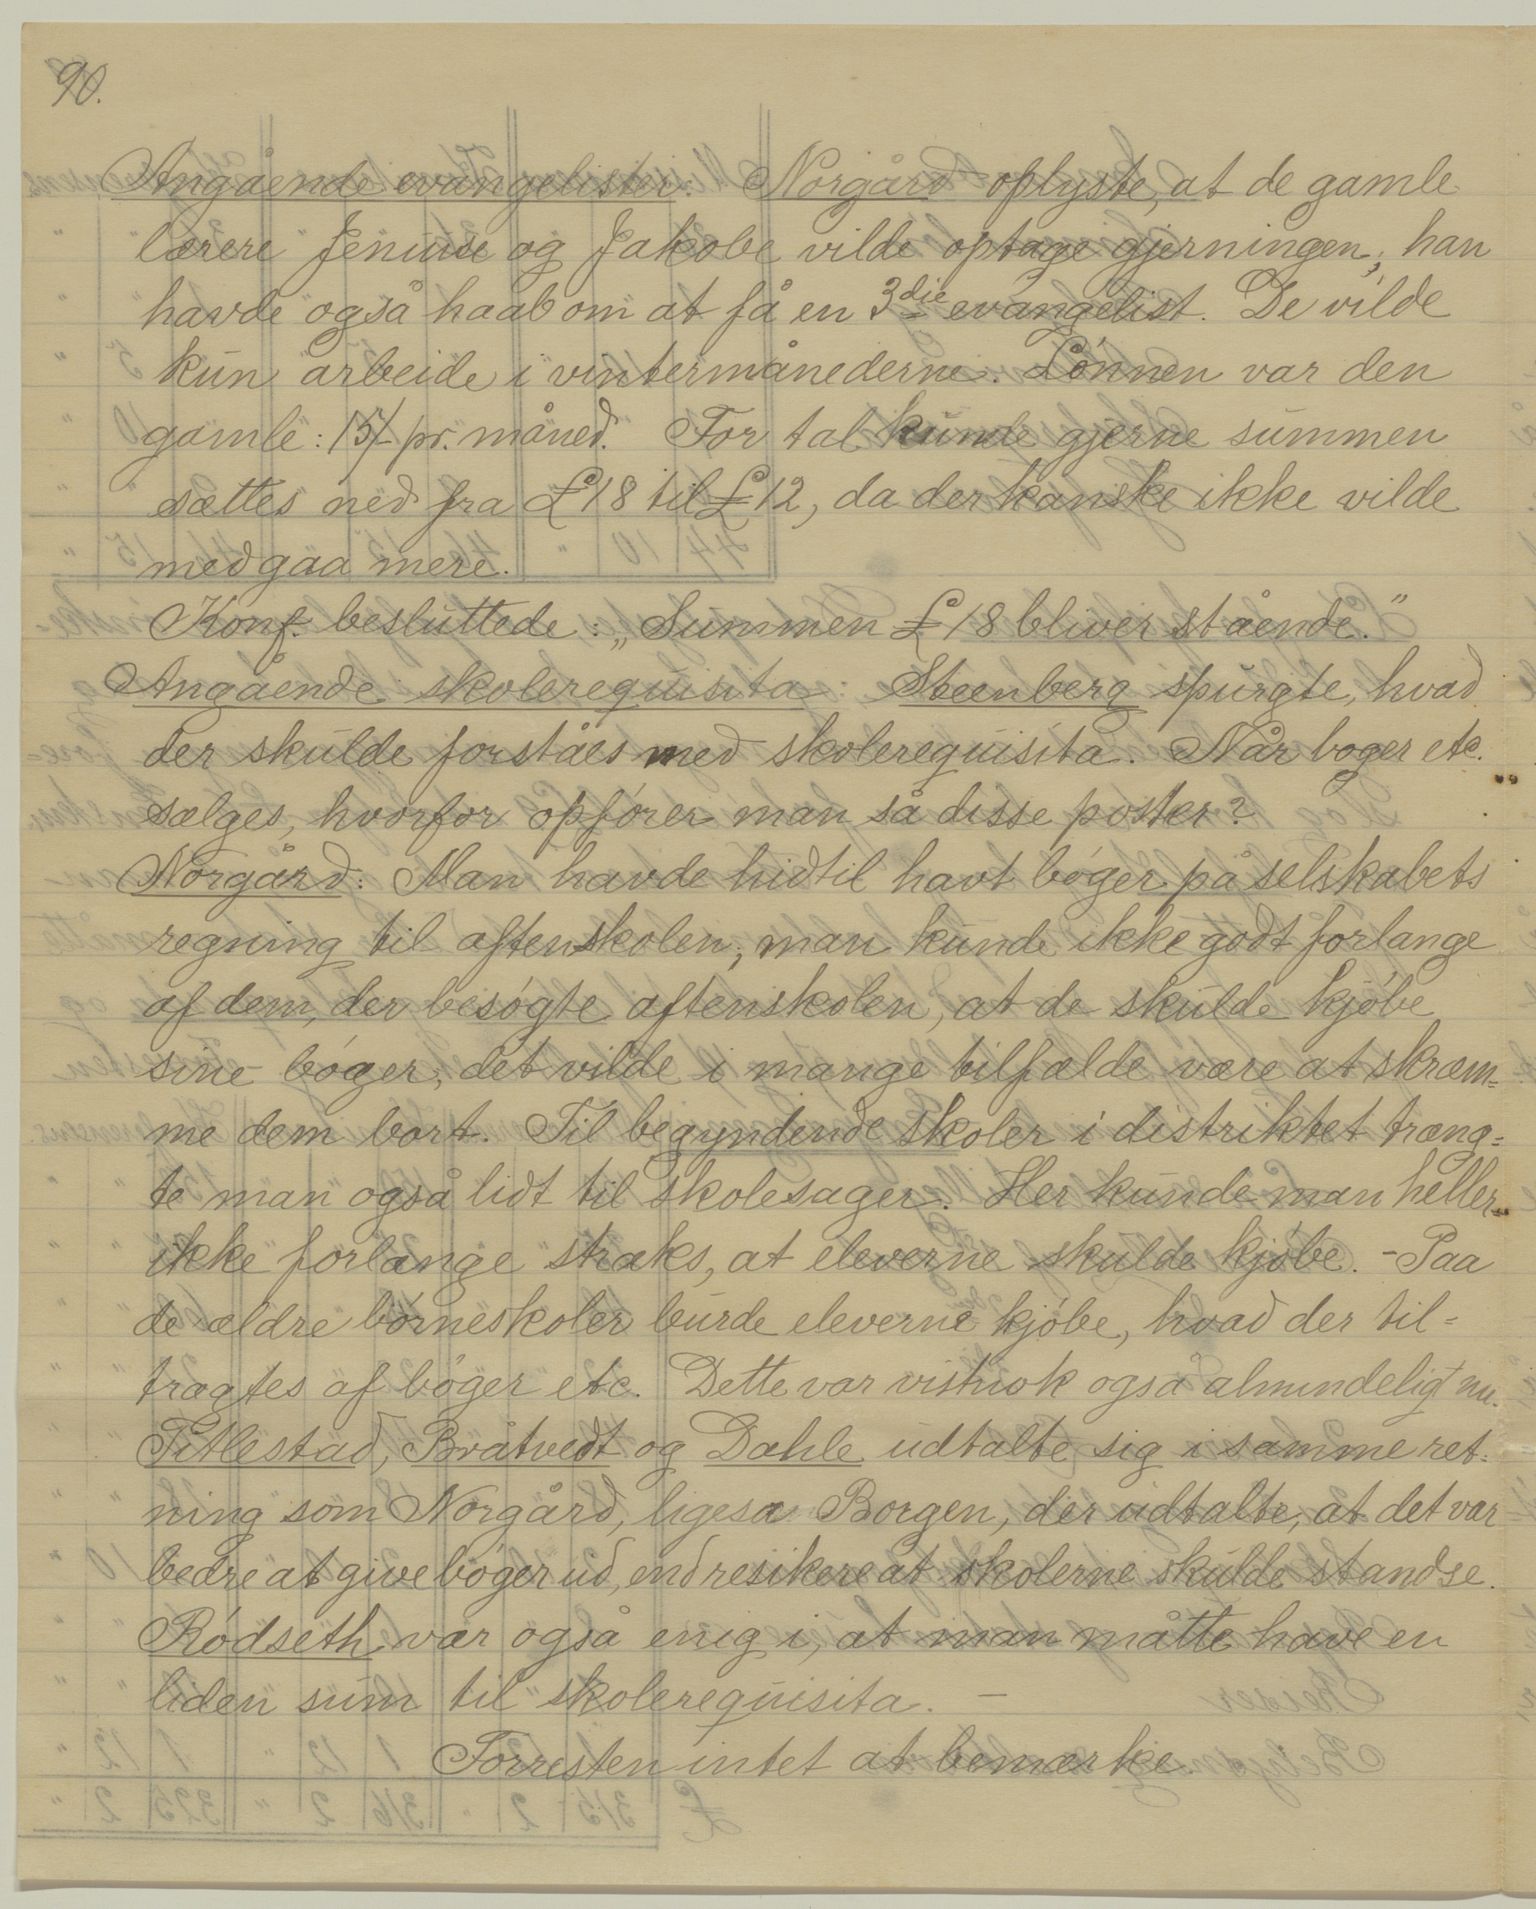 90.
Angående evangelister: Norgård oplyste, at de gamle
lærere Jeniuse og Jakobe vilde optage gjerningen; han
havde også haab om at få en 3die evangelist. De vilde
kun arbeide i vintermånederne. Lönnen var den
gamle: 15/- pr. måned. For tal kunde gjerne summen
sættes ned fra £18 til £12, da der kanske ikke vilde
medgaa mere.
Konf. besluttede: „Summen £18 bliver stående."
Angående skolerequisita: Steenberg spurgte, hvad
der skulde forståes med skolerequisita. Når boger etc.
sælges, hvorfor opfórer man så disse poster?
Norgård: Man havde hidtil havt bóger på selskabets
regning til aftenskolen; man kunde ikke godt forlange
af dem, der besógte aftenskolen, at de skulde kjóbe
sine bóger; det vilde i mange tilfælde være at skræm=
me dem bort. Til begyndende skoler i distriktet træng=
te man også lidt til skolesager. Her kunde man heller
ikke forlange straks, at eleverne skulde kjóbe. - Paa
de ældre bórneskoler burde eleverne kjóbe, hvad der til=
trægtes af bóger etc. Dette var vistnok også almindeligt nu.
Titlestad, Bråtvedt og Dahle udtalte sig i samme ret=
ning som Norgård, ligesa Borgen, der udtalte, at det var
bedre at give bóger ud, end resikere at skolerne skulde standse.
Ródseth var også enig i, at man måtte have en
liden sum til skolerequisita. —
Forresten intet at bemærke.